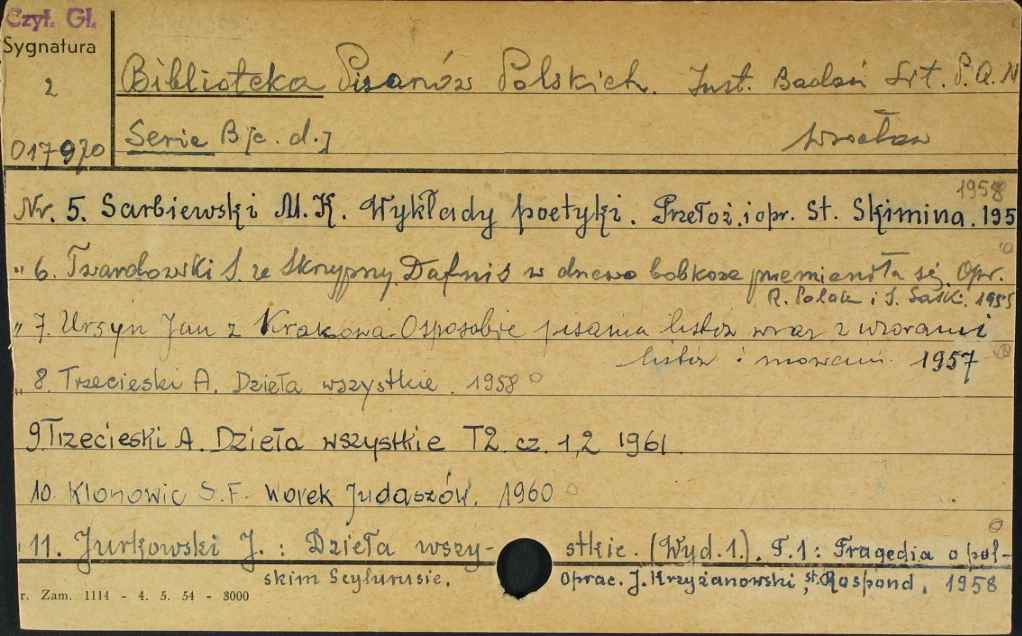 Czyt. Gł.
Sygnatura
2
017970
Biblioteka Pisarzów Polskich. Inst. Badań Lit. P.A.N
Serie B [c. d.] Wrocław
1958
Nr. 5. Sarbiewski M. K. Wykłady poetyki. Przełoż. i opr. St. Skimina. 195
" 6. Twardowski S. ze Skrzypny. Dafnis w drzewo bobkowe przemieniła się. Opr.
R. Polak i S. Sask. 1955
" 7. Ursyn Jan z Krakowa. O sposobie pisania listów wraz z wzorami
listów i mowami. 1957
" 8. Trzecieski A. Dzieła wszystkie. 1958
9 Trzecieski A. Dzieła wszystkie T2. cz. 1,2 1961
10. Klonowic S. F. Worek Judaszów. 1960
" 11. Jurkowski J. : Dzieła wszy- stkie. (Wyd. 1.). T.1 : Tragedia o pol-
skim Scylurusie. Oprac. J. Krzyżanowski, St. Rospond, 1958
r. Zam. 1114 - 4. 5. 54 - 3000